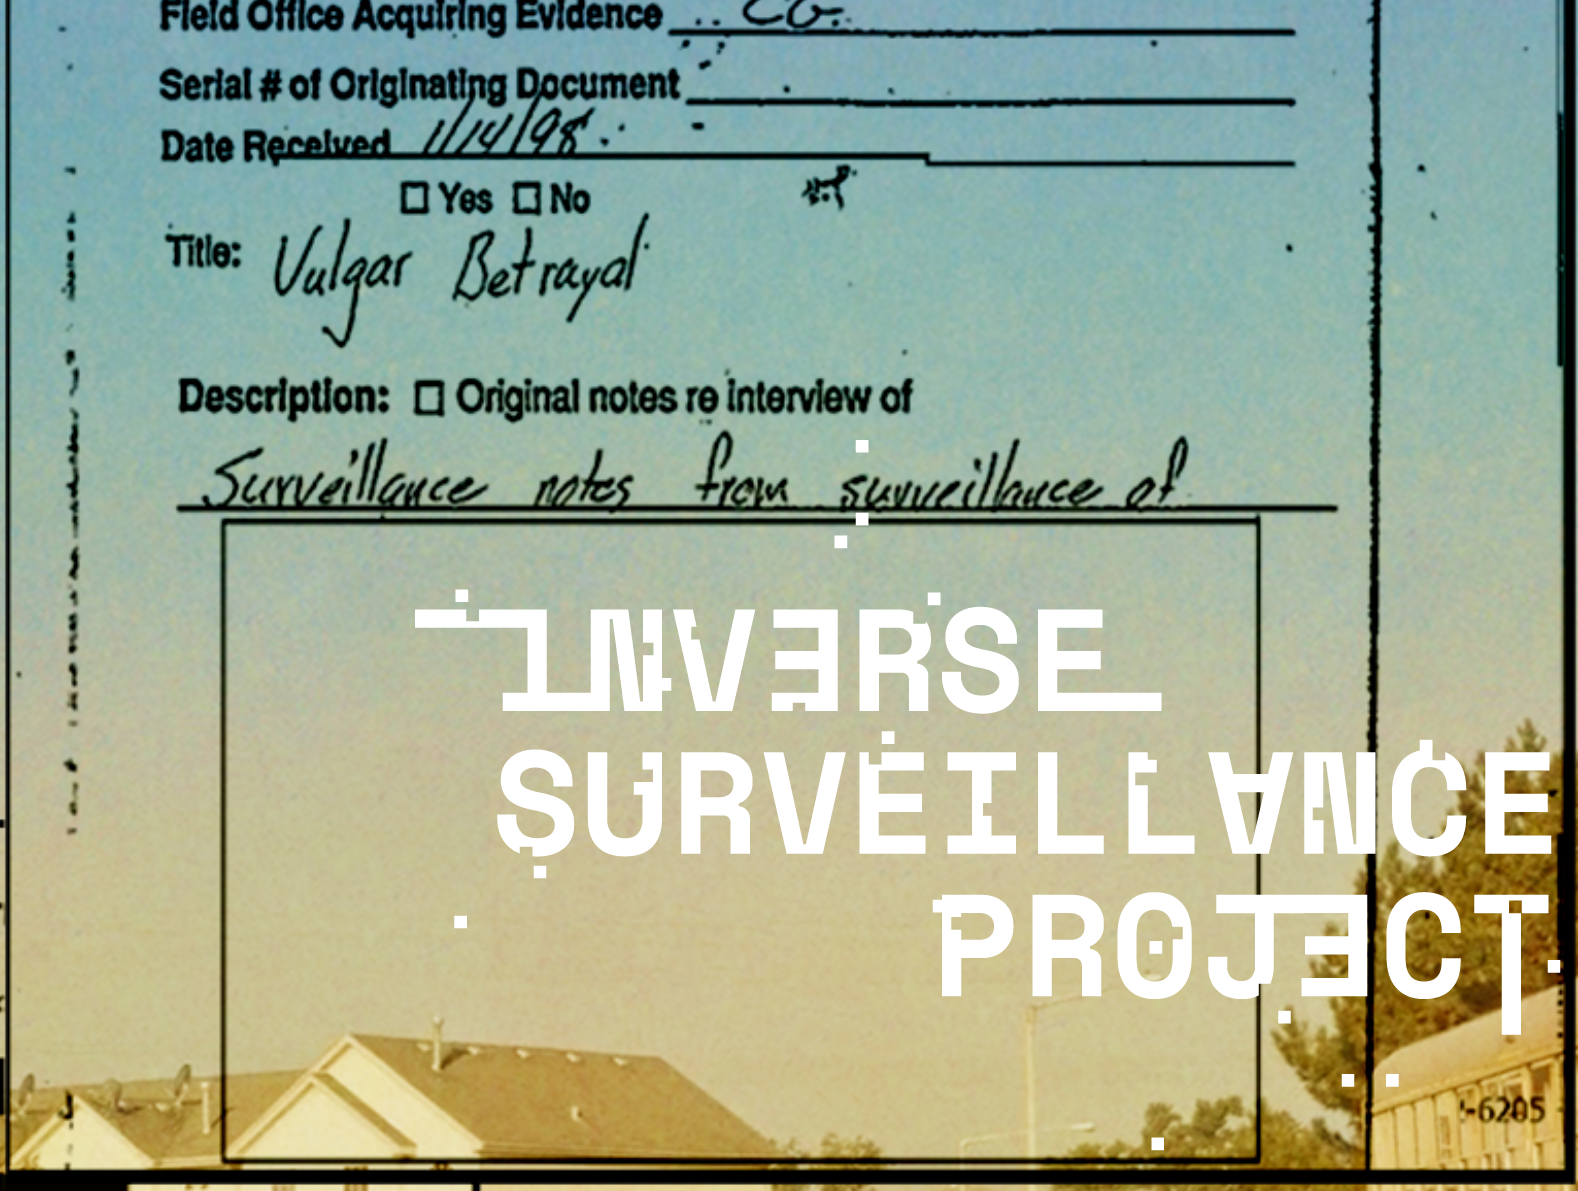 Field Office Acquiring Evidence CG.
Serial # of Originating Document
Date Received 1/14/98
☐ Yes ☐ No
Title: Vulgar Betrayal
Description: ☐ Original notes re interview of
Surveillance notes from surveillance of
INVERSE
SURVEILLANCE
PROJECT
-6205